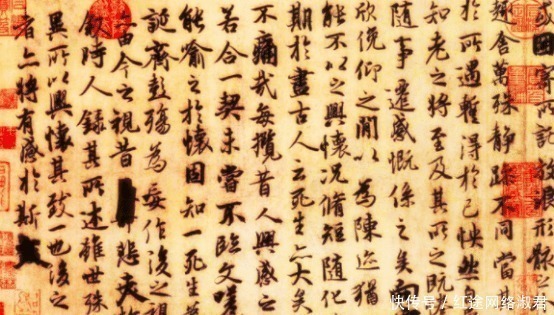 或因寄所託放浪形骸之
趣舍萬殊靜躁不同當
於所遇蹔得於己怏然自
知老之將至及其所之既
隨事遷感慨係之矣向
欣俛仰之間以為陳迹猶
能不以之興懷況脩短隨化
期於盡古人云死生亦大矣
不痛哉每攬昔人興感之
若合一契未嘗不臨文嗟
能喻之於懷固知一死生
誕齊彭殤為妄作後之視
由今之視昔悲夫
敘時人錄其所述雖世殊
異所以興懷其致一也後之
者亦將有感於斯
快传号/红途网络淑君